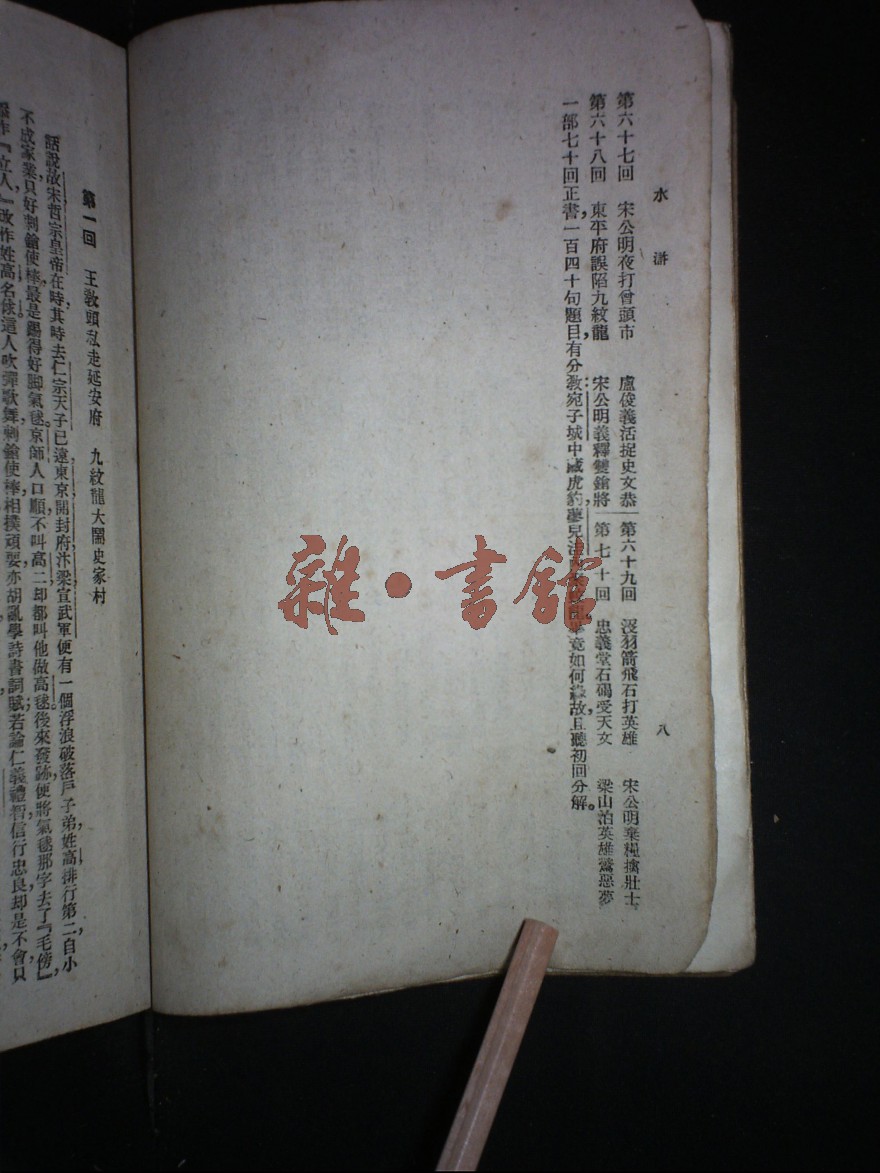 水滸 八
第六十七回 宋公明夜打曾頭市 盧俊義活捉史文恭 第六十九回 沒羽箭飛石打英雄 宋公明棄糧擒壯士
第六十八回 東平府誤陷九紋龍 宋公明義釋雙鎗將 第七十回 忠義堂石碣受天文 梁山泊英雄驚惡夢
一部七十回正書，一百四十句題目，有分敎：宛子城中藏虎豹，蓼兒洼 畢竟如何緣故，且聽初回分解。
第一回 王敎頭私走延安府 九紋龍大鬧史家村
話說故宋哲宗皇帝在時，其時去仁宗天子已遠，東京開封府汴梁宣武軍便有一個浮浪破落戶子弟，姓高，排行第二，自小
不成家業，只好刺鎗使棒，最是踢得好脚氣毬。京師人口順，不叫高二，却都叫他做高毬。後來發跡，便將氣毬那字去了『毛傍』，
添作『立人』，改作姓高，名俅。這人吹彈歌舞，刺鎗使棒，相撲頑耍，亦胡亂學詩書詞賦；若論仁義禮智，信行忠良，却是不會，只
雜·書館